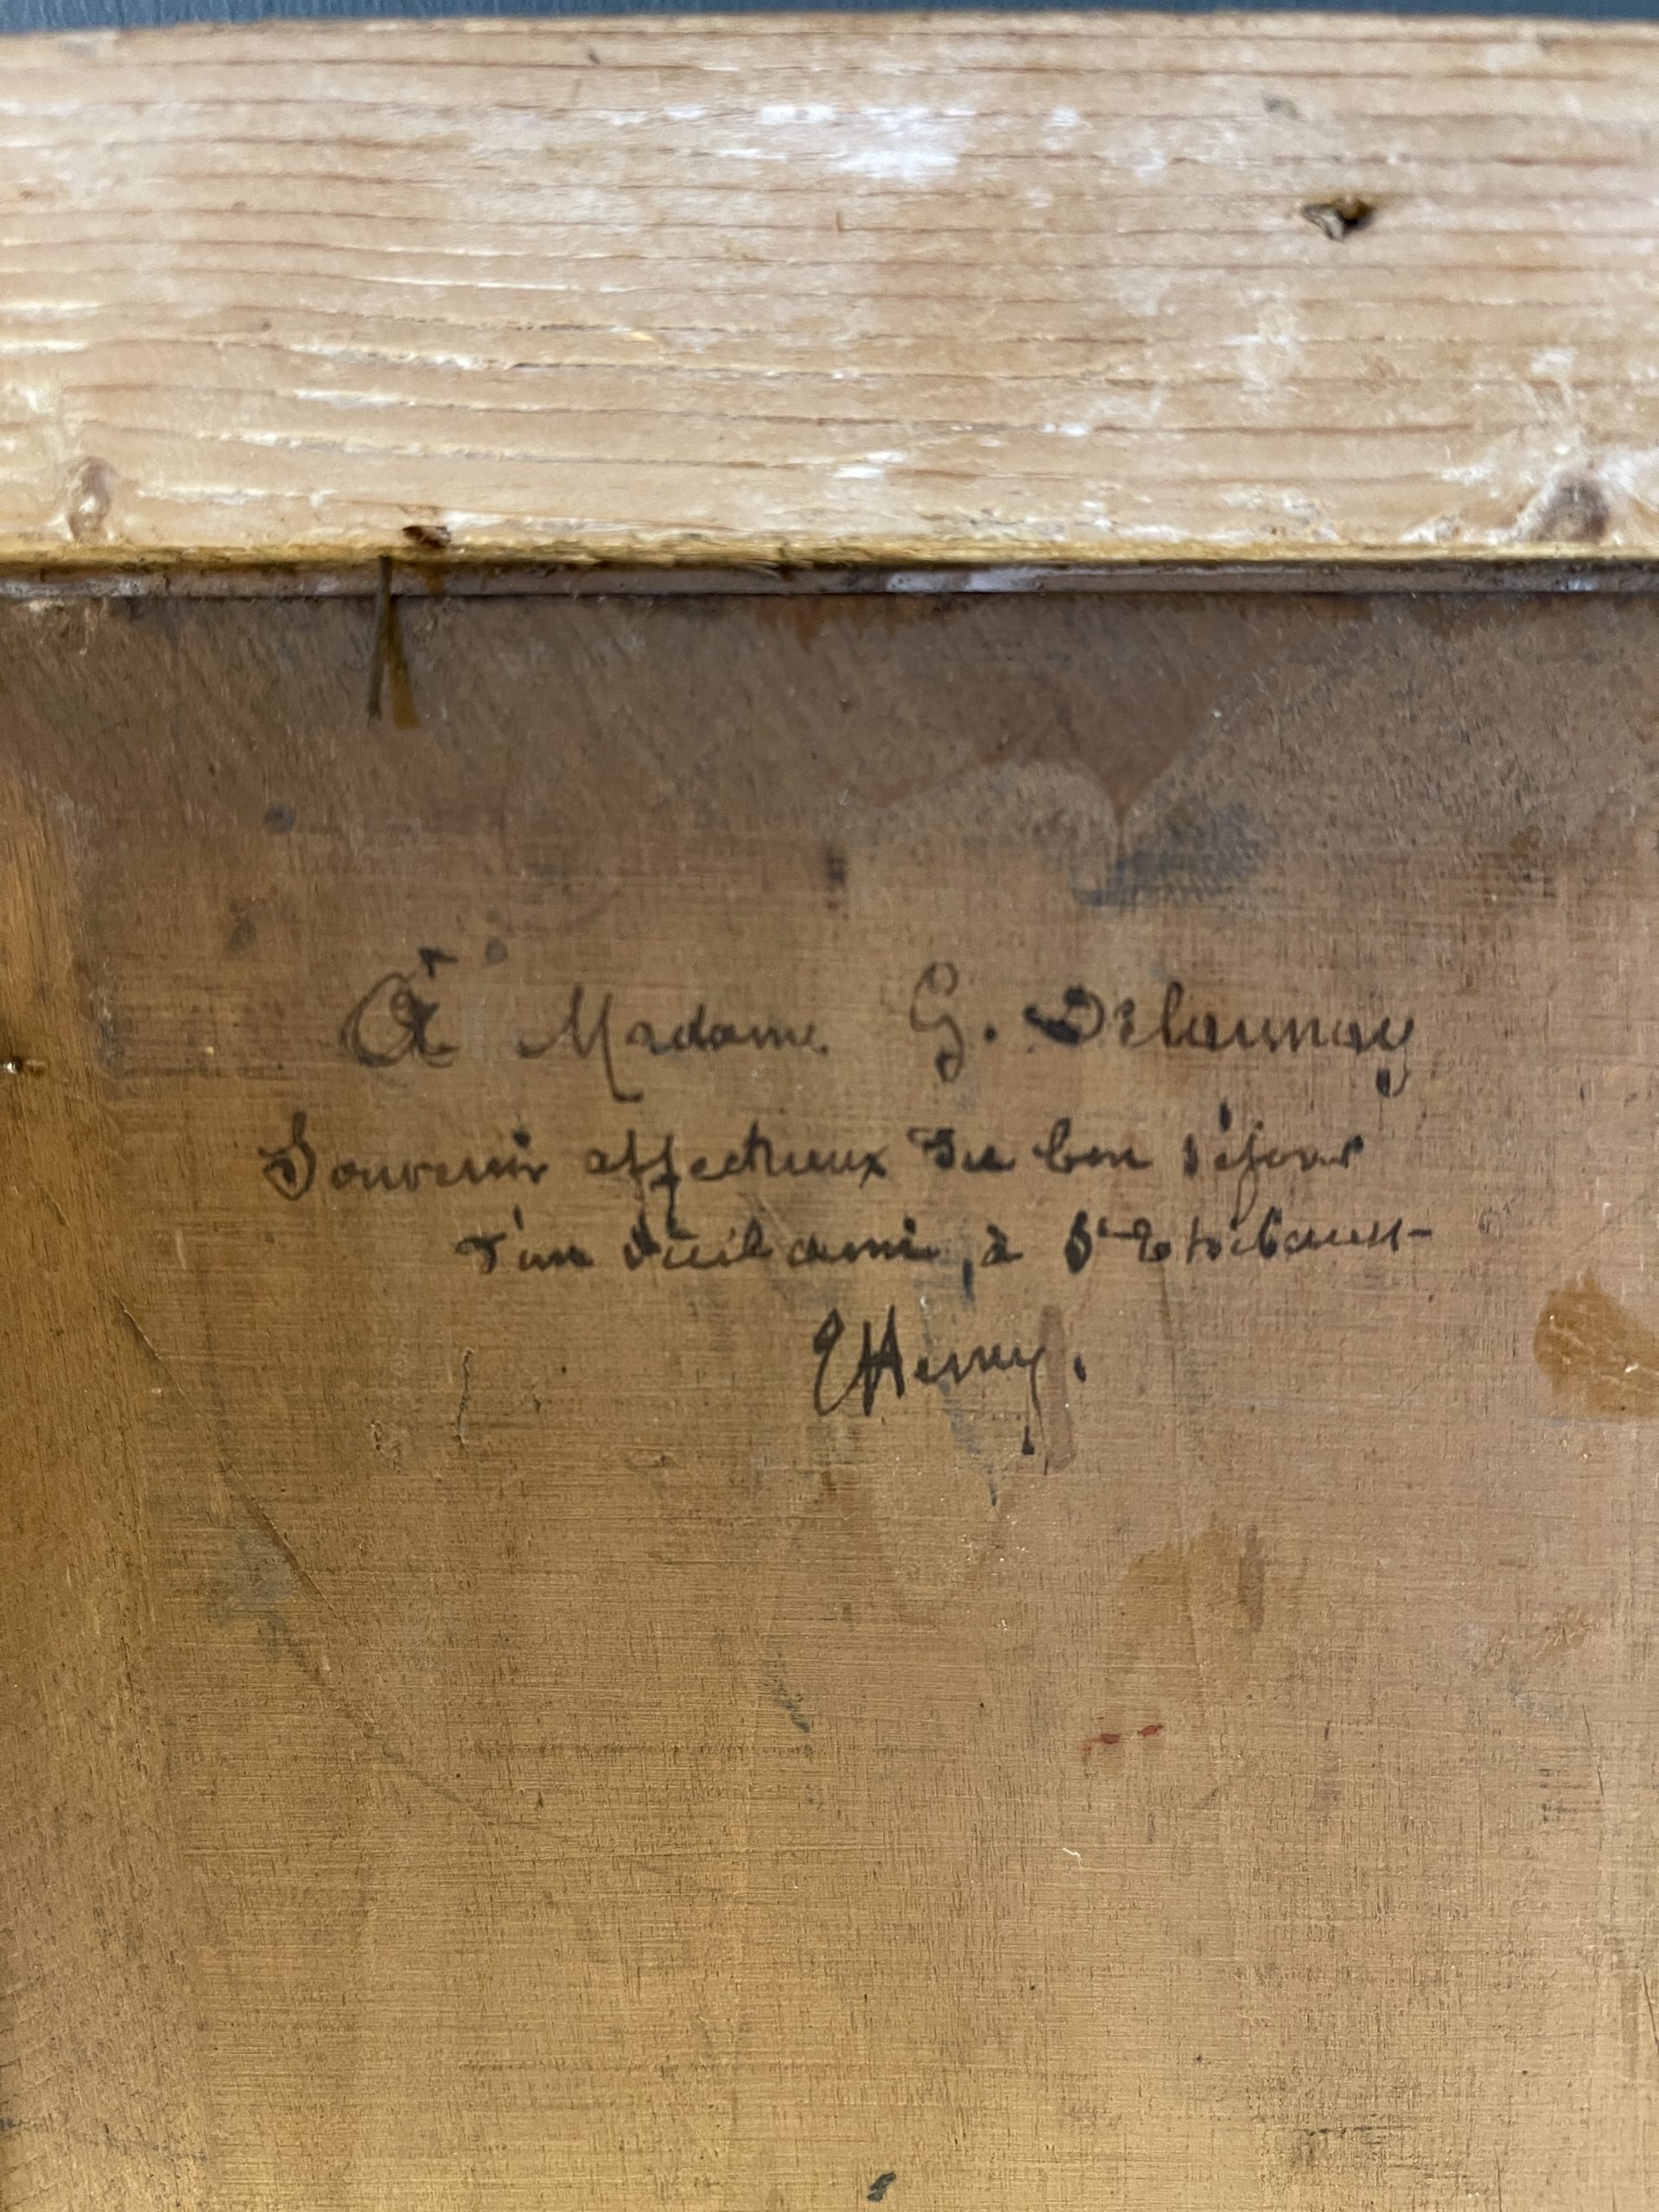 À Madame G. Delaunay
Souvenir affectueux du bon séjour
d'un vieil ami, à
EHenry.